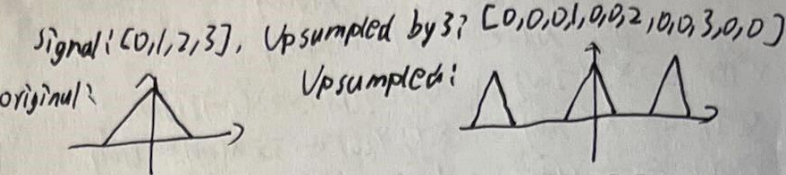 Signal: [0,1,2,3], Upsumpled by 3: [0,0,0,1,0,0,2,0,0,3,0,0]
original:
Upsumpled: